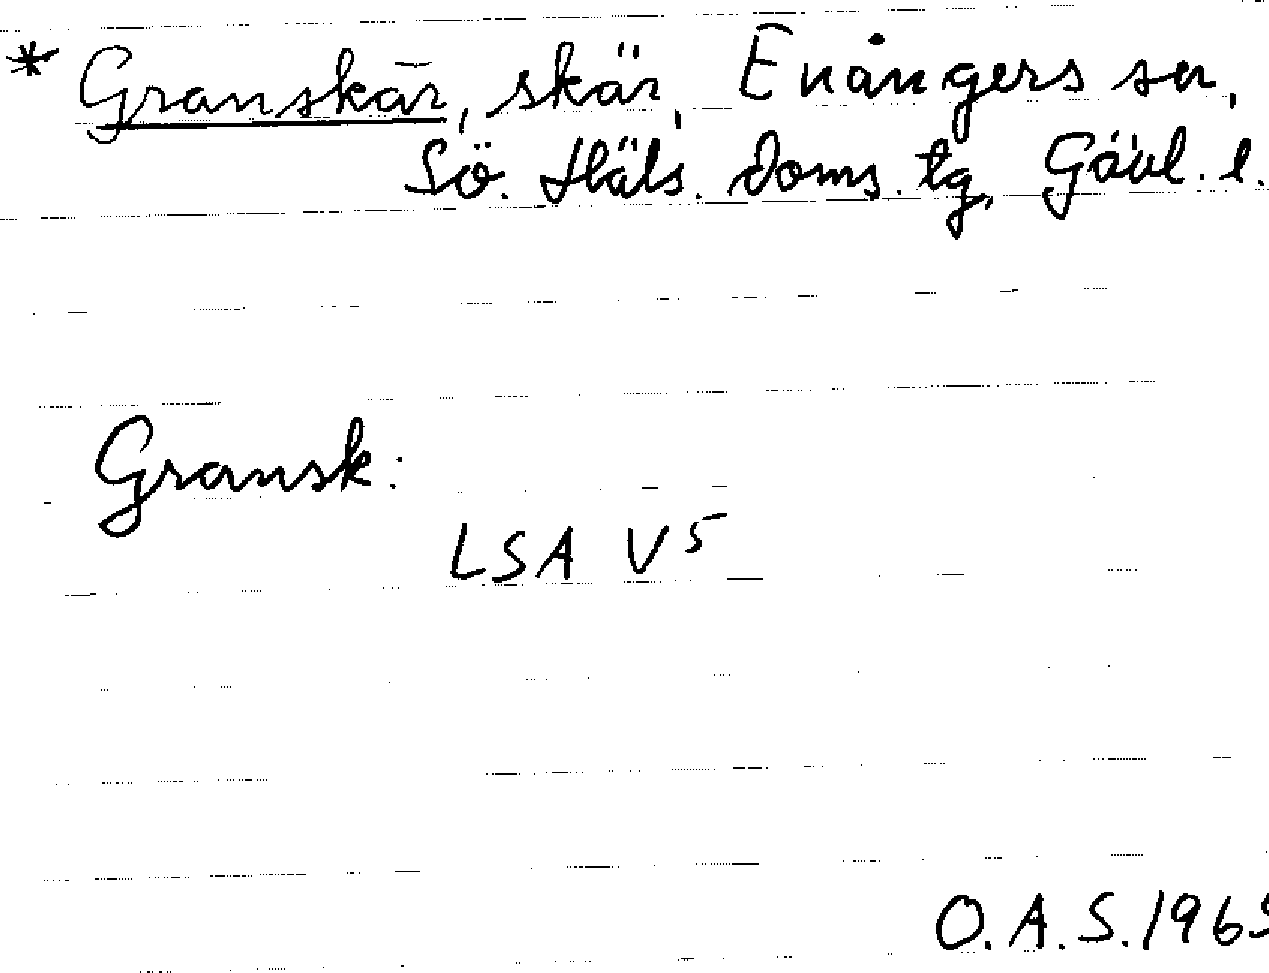 * Granskär, skär, Enångers sn,
Sö. Häls. doms. tg, Gävl. l.
Gransk:
LSA V5
O.A.S. 1965